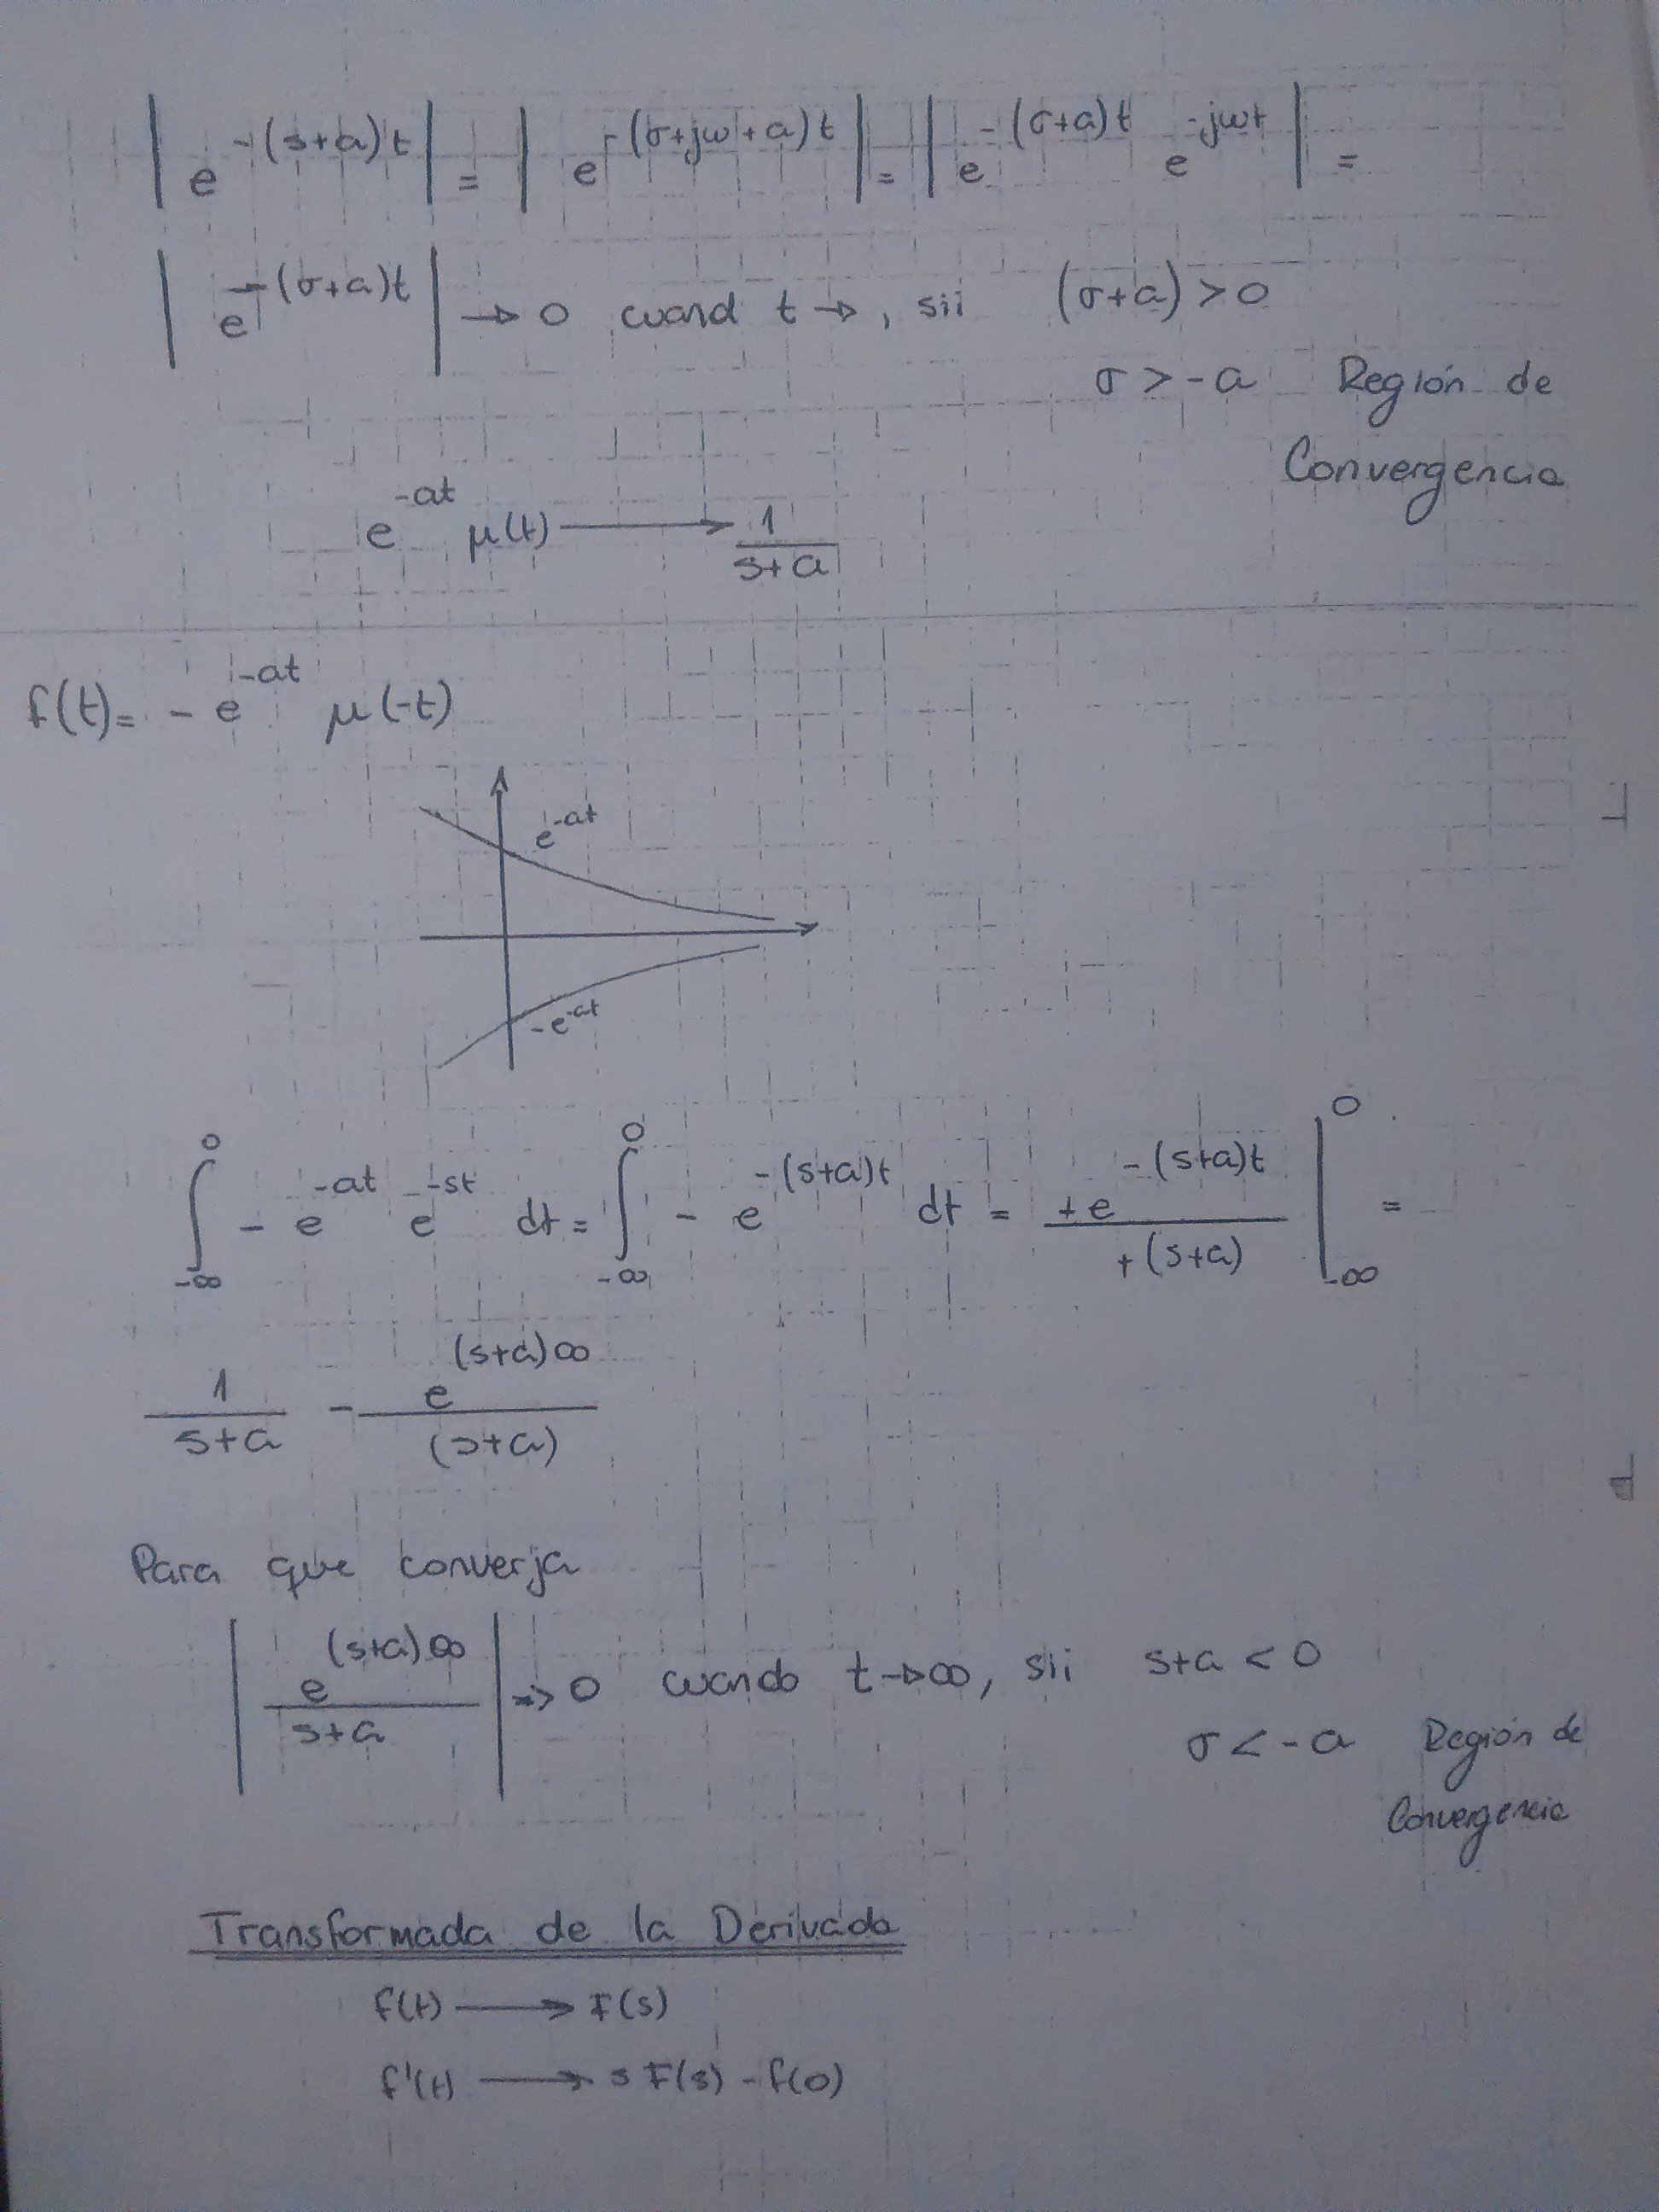 |e^{-(s+a)t}| = |e^{-(σ+jω+a)t}| = |e^{-(σ+a)t} e^{-jωt}| =
|e^{-(σ+a)t}| → 0 cuand t →, sii (σ+a) > 0
σ > -a Región de
Convergencia
e^{-at} μ(t) → 1/(s+a)
f(t) = - e^{-at} μ(-t)
e^{-at}
-e^{-at}
∫_{-∞}^{0} - e^{-at} e^{-st} dt = ∫_{-∞}^{0} - e^{-(s+a)t} dt = +e^{-(s+a)t}/+(s+a) |_{-∞}^{0} =
1/(s+a) - e^{(s+a)∞}/(s+a)
Para que converja
|e^{(s+a)∞}/(s+a)| → 0 cuando t → ∞, sii s+a < 0
σ < -a Región de
Convergencia
Transformada de la Derivada
f(t) → F(s)
f'(t) → s F(s) - f(0)